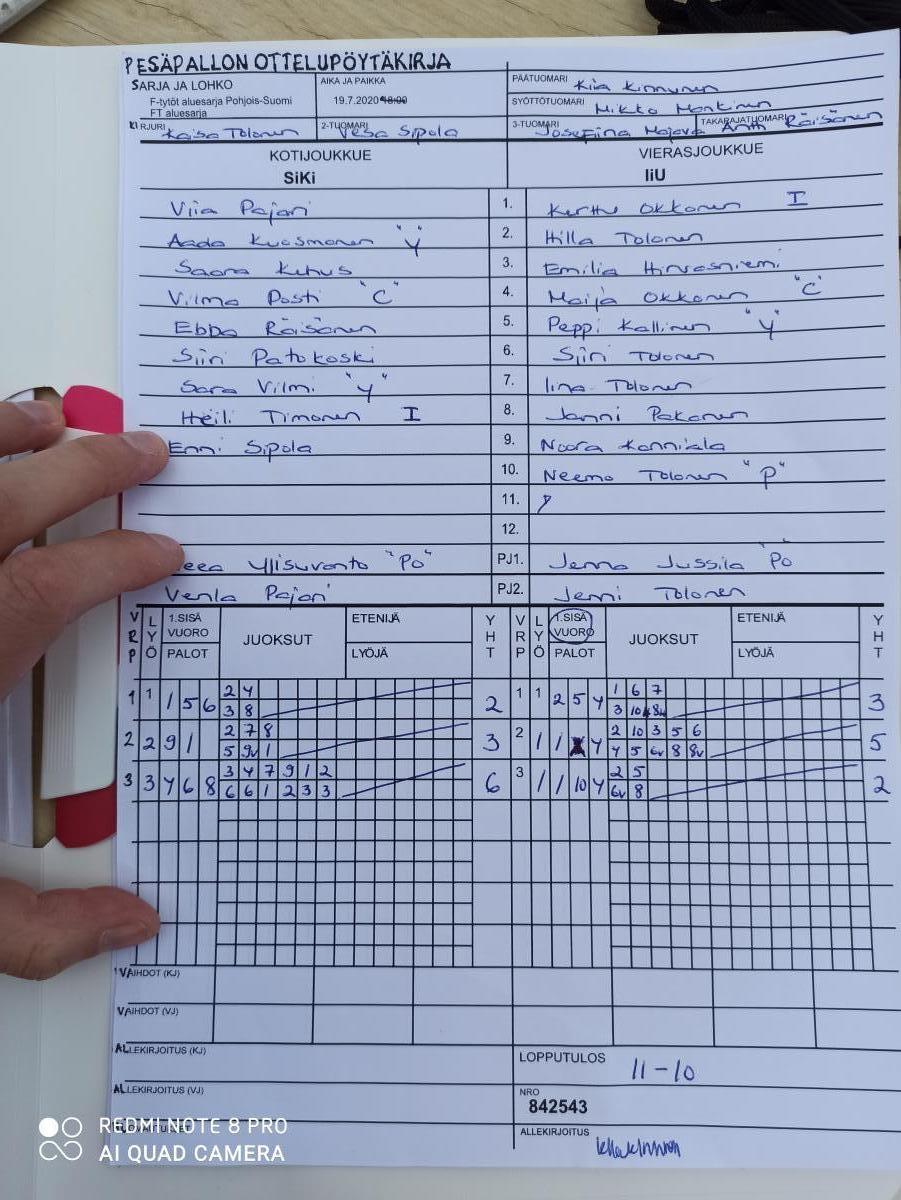 PESÄPALLON OTTELUPÖYTÄKIRJA
SARJA JA LOHKO
F-tytöt aluesarja Pohjois-Suomi
FT aluesarja
AIKA JA PAIKKA
19.7.2020 18:00
PÄÄTUOMARI Kiia Kinnunen
SYÖTTÖTUOMARI Mikko Monkinen
KIRJURI Kaisa Tolonen
2-TUOMARI Vesa Sipola
3-TUOMARI Josefiina Majava
TAKARAJATUOMARI Antti Räisänen
KOTIJOUKKUE VIERASJOUKKUE
SiKi IiU
Viia Pajari 1. Kerttu Okkonen I
Aada Kuosmonen "Y" 2. Hilla Tolonen
Saara Kehus 3. Emilia Hirvasniemi
Vilma Posti "C" 4. Maija Okkonen "C"
Ebba Räisänen 5. Peppi Kallinen "Y"
Siiri Patokoski 6. Siiri Tolonen
Sara Vilmi "Y" 7. Iina Tolonen
Heili Timonen I 8. Janni Pakanen
Enni Sipola 9. Noora Konniala
10. Neema Tolonen "P"
11.
12.
Ylisuvanto "Po" PJ1. Jenna Jussila "Po
Venla Pajari PJ2. Jenni Tolonen
VRP LYÖ 1.SISÄ VUORO PALOT JUOKSUT ETENIJÄ LYÖJÄ YHT VRP LYÖ 1.SISÄ VUORO PALOT JUOKSUT ETENIJÄ LYÖJÄ YHT
1 1 1 5 6 2 4 2 1 1 2 5 4 1 6 7 3
3 8 3 10 8v
2 2 9 1 2 7 8 3 2 1 1 4 2 10 3 5 6 5
5 9v 1 4 5 6v 8 8v
3 3 4 6 8 3 4 7 9 1 2 6 3 1 1 10 4 2 5 2
6 6 1 2 3 3 6v 8
VAIHDOT (KJ)
VAIHDOT (VJ)
ALLEKIRJOITUS (KJ)
LOPPUTULOS 11-10
ALLEKIRJOITUS (VJ)
NRO
842543
ALLEKIRJOITUS
REDMI NOTE 8 PRO
AI QUAD CAMERA